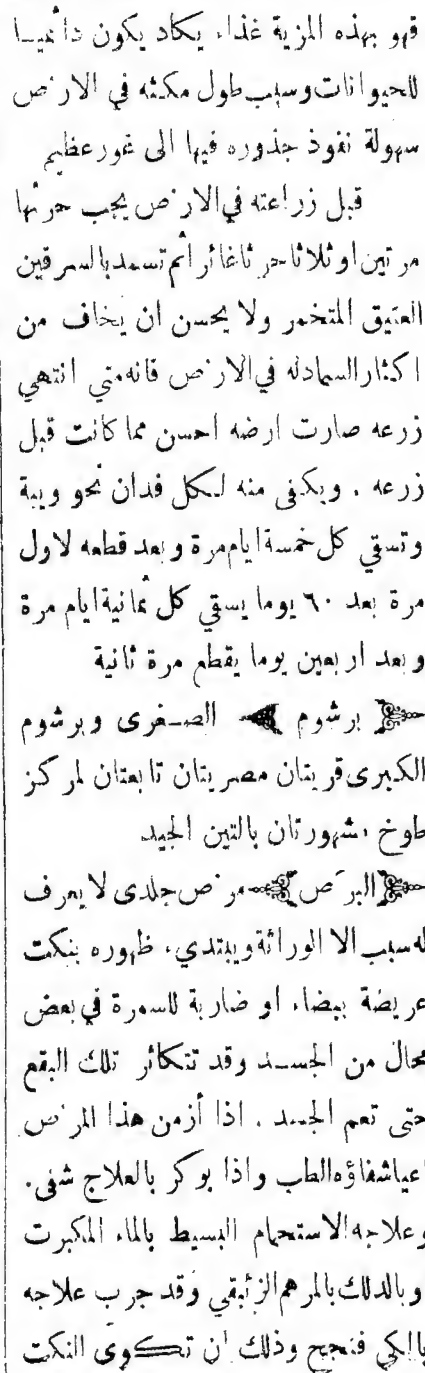 فهو بهذه المزية غذاء يكاد يكون دائميا
للحيوانات وسبب طول مكثه في الارض
سهولة نفوذ جذوره فيها الى غور عظيم
قبل زراعته في الارض يجب حرثها
مرتين او ثلاثا حرثا غائرا ثم تسمد بالسرقين
العتيق المتخمر ولا يحسن ان يخاف من
اكثار السماد له في الارض فانه متي انتهي
زرعه صارت ارضه احسن مما كانت قبل
زرعه . ويكفى منه لكل فدان نحو ويبة
وتسقي كل خمسة ايام مرة وبعد قطعه لاول
مرة بعد ٦٠ يوما يسقي كل ثمانية ايام مرة
وبعد اربعين يوما يقطع مرة ثانية
﴿ برشوم ﴾ الصغرى وبرشوم
الكبرى قريتان مصريتان تابعتان لمركز
طوخ مشهورتان بالتين الجيد
﴿ البرَص ﴾ مرض جلدى لا يعرف
له سبب الا الوراثة ويبتدىء ظهوره بنكت
عريضة بيضاء او ضاربة للسمرة في بعض
محال من الجسد وقد تتكاثر تلك البقع
حتى تعم الجسد . اذا أزمن هذا المرض
اعيا شفاؤه الطب واذا بوكر بالعلاج شفى .
وعلاجه الاستحمام البسيط بالماء المكبرت
وبالدلك بالمرهم الزئبقي وقد جرب علاجه
بالكي فنجح وذلك ان تكوى النكت